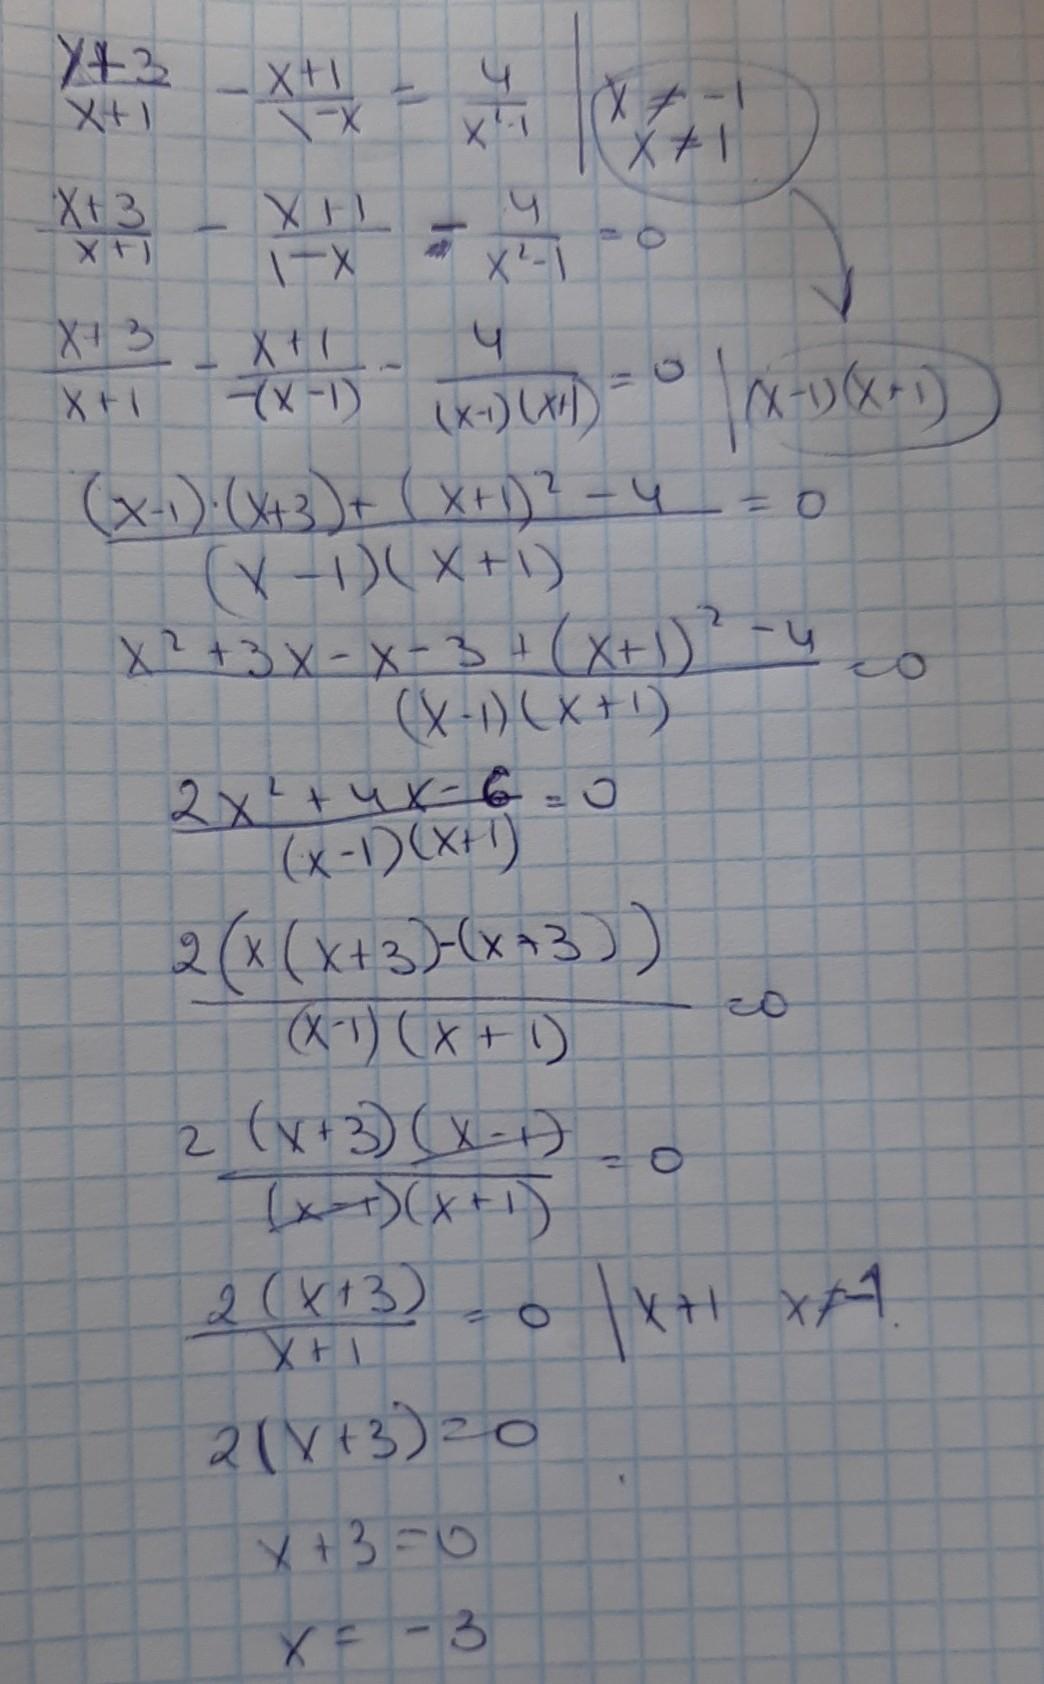 (x+3)/(x+1) - (x+1)/(1-x) = 4/(x²-1) | x ≠ -1
x ≠ 1
(x+3)/(x+1) - (x+1)/(1-x) - 4/(x²-1) = 0
(x+3)/(x+1) - (x+1)/(-(x-1)) - 4/((x-1)(x+1)) = 0 | (x-1)(x+1)
((x-1)·(x+3)+(x+1)²-4)/((x-1)(x+1)) = 0
(x²+3x-x-3+(x+1)²-4)/((x-1)(x+1)) = 0
(2x²+4x-6)/((x-1)(x+1)) = 0
2(x(x+3)-(x+3))/((x-1)(x+1)) = 0
2 (x+3)(x-1)/((x-1)(x+1)) = 0
2(x+3)/(x+1) = 0 | x+1 x≠-1.
2(x+3)=0
x+3=0
x = -3